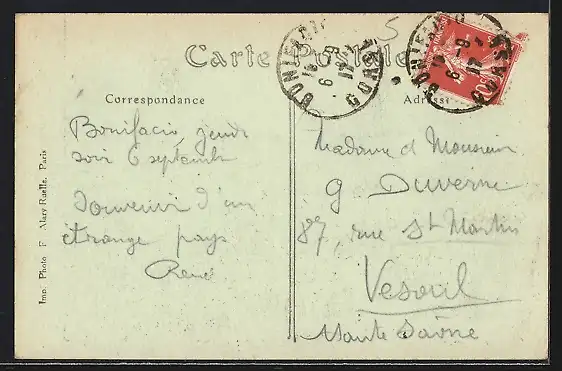 Carte Postale
BONIFACIO
CORSE
5
BONIFACIO
CORSE
Correspondance
Adresse
Bonifacio, jeudi
soir 6 septembre
Souvenir d'un
étrange pays
René
Madame et Monsieur
G Duverne
87, rue St Martin
Vesoul
Haute Saône
Imp. Photo F. Alary-Ruelle, Paris